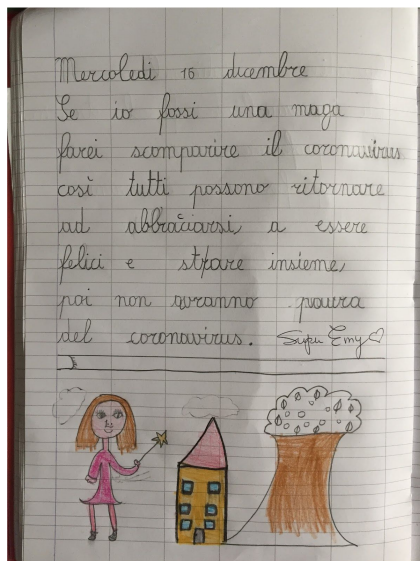 Mercoledì 16 dicembre
Se io fossi una maga
farei scomparire il coronavirus
così tutti possono ritornare
ad abbracciarsi, a essere
felici e stare insieme,
poi non avranno paura
del coronavirus. Super Emy